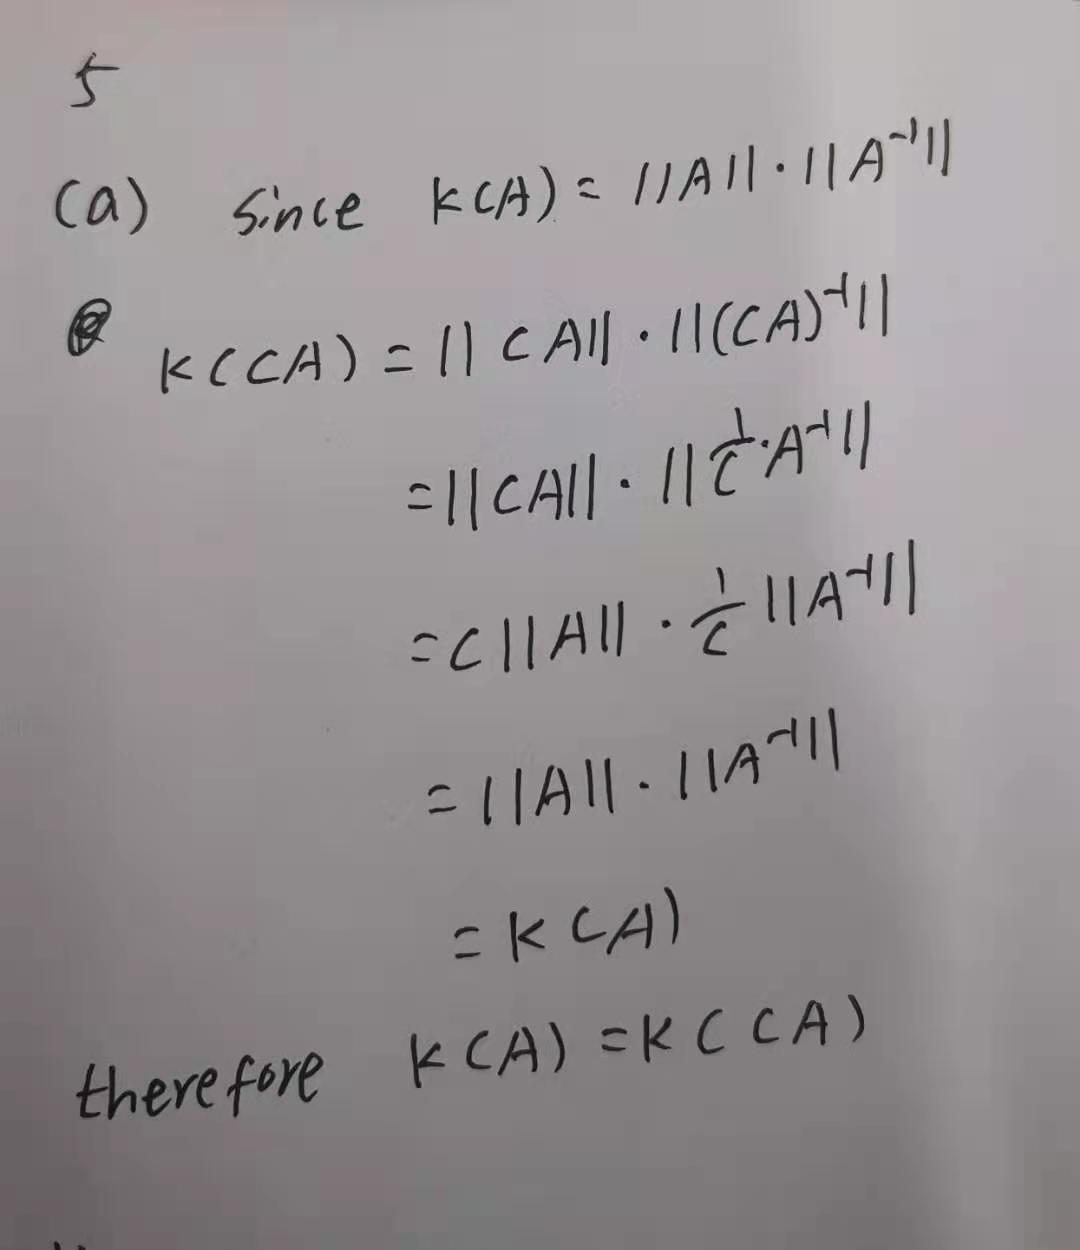 5
(a) since K(A) = ||A|| · ||A⁻¹||
K(CA) = || CA|| · ||(CA)⁻¹||
= ||CA|| · || 1/C · A⁻¹||
= C ||A|| · 1/C ||A⁻¹||
= ||A|| · ||A⁻¹||
= K(A)
therefore K(A) = K(CA)